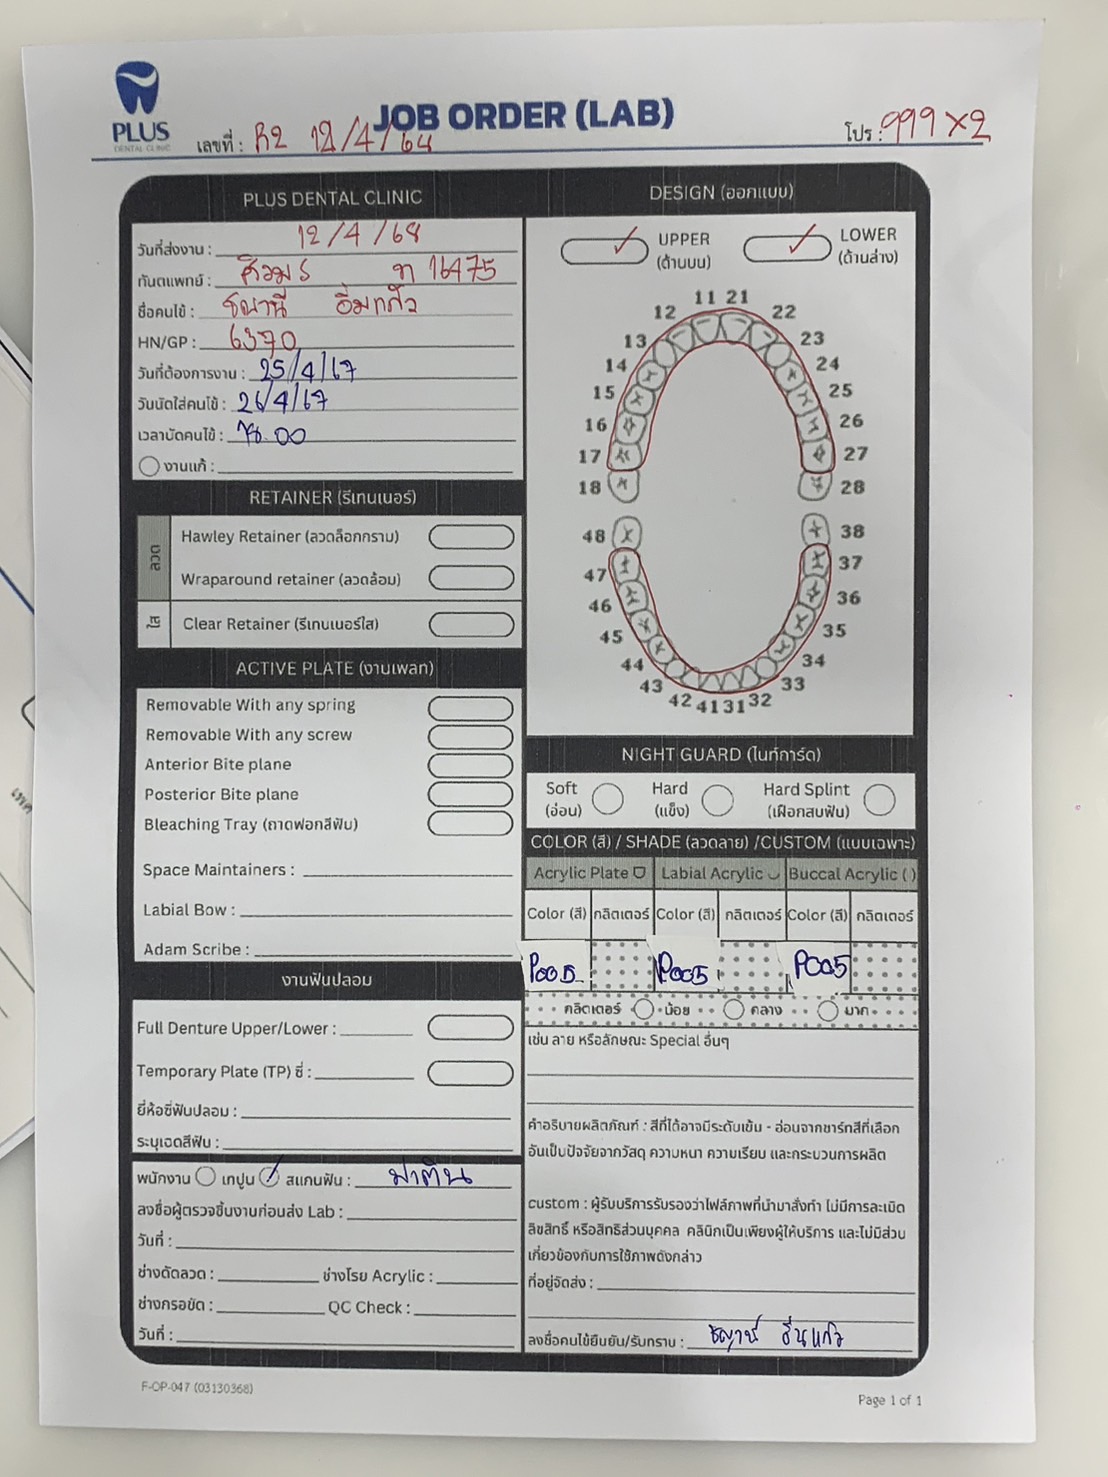 PLUS
DENTAL CLINIC
JOB ORDER (LAB)
เลขที่ : R2 12/4/68
โปร : 999 x 2
PLUS DENTAL CLINIC
วันที่ส่งงาน : 12/4/68
ทันตแพทย์ : ศิวมร ท 16475
ชื่อคนไข้ : ธญานี อิ่มแก้ว
HN/GP : 6370
วันที่ต้องการงาน : 25/4/67
วันนัดใส่คนไข้ : 26/4/67
เวลานัดคนไข้ : 00
งานแก้ :
RETAINER (รีเทนเนอร์)
ลวด
Hawley Retainer (ลวดล็อกกราม)
Wraparound retainer (ลวดล้อม)
ใส
Clear Retainer (รีเทนเนอร์ใส)
ACTIVE PLATE (งานเพลท)
Removable With any spring
Removable With any screw
Anterior Bite plane
Posterior Bite plane
Bleaching Tray (ถาดฟอกสีฟัน)
Space Maintainers :
Labial Bow :
Adam Scribe :
งานฟันปลอม
Full Denture Upper/Lower :
Temporary Plate (TP) ซี่ :
ยี่ห้อซี่ฟันปลอม :
ระบุเฉดสีฟัน :
พนักงาน เทปูน สแกนฟัน : ฟาติน
ลงชื่อผู้ตรวจชิ้นงานก่อนส่ง Lab :
วันที่ :
ช่างดัดลวด : ช่างโรย Acrylic :
ช่างกรอขัด : QC Check :
วันที่ :
DESIGN (ออกแบบ)
UPPER
(ด้านบน)
LOWER
(ด้านล่าง)
11 21
12 22
13 23
14 24
15 25
16 26
17 27
18 28
48 38
47 37
46 36
45 35
44 34
43 33
42 41 31 32
NIGHT GUARD (ไนท์การ์ด)
Soft
(อ่อน)
Hard
(แข็ง)
Hard Splint
(เฝือกสบฟัน)
COLOR (สี) / SHADE (ลวดลาย) /CUSTOM (แบบเฉพาะ)
Acrylic Plate Labial Acrylic Buccal Acrylic ( )
Color (สี) กลิตเตอร์ Color (สี) กลิตเตอร์ Color (สี) กลิตเตอร์
P005 P005 P005
กลิตเตอร์ น้อย กลาง มาก
เช่น ลาย หรือลักษณะ Special อื่นๆ
คำอธิบายผลิตภัณฑ์ : สีที่ได้อาจมีระดับเข้ม - อ่อนจากชาร์ทสีที่เลือก
อันเป็นปัจจัยจากวัสดุ ความหนา ความเรียบ และกระบวนการผลิต
custom : ผู้รับบริการรับรองว่าไฟล์ภาพที่นำมาสั่งทำ ไม่มีการละเมิด
ลิขสิทธิ์ หรือสิทธิส่วนบุคคล คลินิกเป็นเพียงผู้ให้บริการ และไม่มีส่วน
เกี่ยวข้องกับการใช้ภาพดังกล่าว
ที่อยู่จัดส่ง :
ลงชื่อคนไข้ยืนยัน/รับทราบ : ธญานี อิ่มแก้ว
F-OP-047 (03130368)
Page 1 of 1